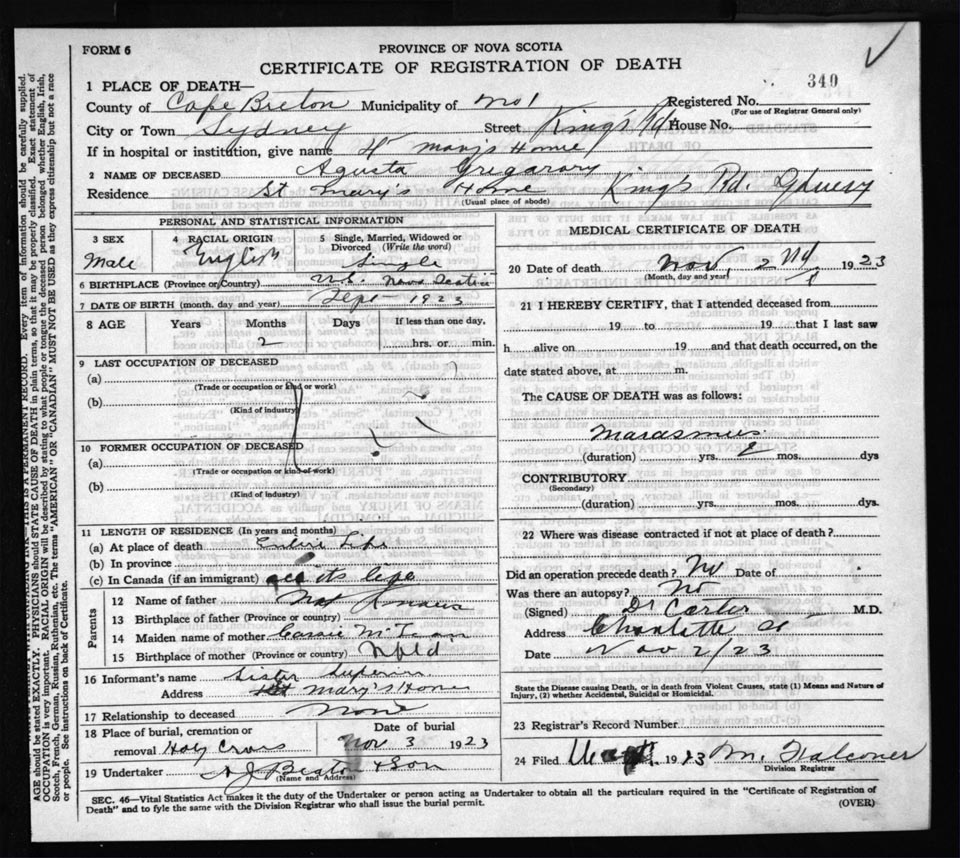 FORM 6
PROVINCE OF NOVA SCOTIA
CERTIFICATE OF REGISTRATION OF DEATH
340
1 PLACE OF DEATH—
County of Cape Breton Municipality of No 1 Registered No.
(For use of Registrar General only)
City or Town Sydney Street Kings Rd House No.
If in hospital or institution, give name St Marys Home
2 NAME OF DECEASED Agusta Gregarory
Residence St Mary's Home Kings Rd. Sydney
(Usual place of abode)
PERSONAL AND STATISTICAL INFORMATION
3 SEX 4 RACIAL ORIGIN 5 Single, Married, Widowed or Divorced (Write the word)
Male English Single
6 BIRTHPLACE (Province or Country) N.S. Nova Scotia
7 DATE OF BIRTH (month, day and year) Sept 1923
8 AGE Years Months Days If less than one day,
2 hrs. or min.
9 LAST OCCUPATION OF DECEASED
(a)
(Trade or occupation or kind or work)
(b)
(Kind of industry)
10 FORMER OCCUPATION OF DECEASED
(a)
(Trade or occupation or kind of work)
(b)
(Kind of industry)
11 LENGTH OF RESIDENCE (In years and months)
(a) At place of death Entire Life
(b) In province
(c) In Canada (if an immigrant) all its life
Parents
12 Name of father Not Known
13 Birthplace of father (Province or country)
14 Maiden name of mother Cassie
15 Birthplace of mother (Province or country) Nfld
16 Informant's name Sister Superior
Address St Mary's Home
17 Relationship to deceased None
18 Place of burial, cremation or removal Holy Cross
Date of burial Nov 3 1923
19 Undertaker A J Beaton & Son
(Name and Address)
MEDICAL CERTIFICATE OF DEATH
20 Date of death Nov, 2 nd 1923
(Month, day and year)
21 I HEREBY CERTIFY, that I attended deceased from
19 to 19 that I last saw
h alive on 19 and that death occurred, on the
date stated above, at m.
The CAUSE OF DEATH was as follows:
Marasmus
(duration) yrs. mos. dys
CONTRIBUTORY
(Secondary)
(duration) yrs. mos. dys.
22 Where was disease contracted if not at place of death?
Did an operation precede death? No Date of
Was there an autopsy? No
(Signed) Dr Carter M.D.
Address Charlotte St
Date Nov 2/23
State the Disease causing Death, or in death from Violent Causes, state (1) Means and Nature of
Injury, (2) whether Accidental, Suicidal or Homicidal.
23 Registrar's Record Number
24 Filed 1923 M. Falconer
Division Registrar
SEC. 46—Vital Statistics Act makes it the duty of the Undertaker or person acting as Undertaker to obtain all the particulars required in the "Certificate of Registration of
Death" and to fyle the same with the Division Registrar who shall issue the burial permit.
(OVER)
THIS IS A PERMANENT RECORD. Every item of information should be carefully supplied.
AGE should be stated EXACTLY. PHYSICIANS should STATE CAUSE OF DEATH in plain terms, so that it may be properly classified. Exact statement of
OCCUPATION is very important. RACIAL ORIGIN will be described by stating to what people or tongue the deceased person belonged whether English, Irish,
Scotch, French, German, Russian, Ruthenian, etc. The terms "AMERICAN" OR "CANADIAN" MUST NOT BE USED as they express citizenship but not a race
or people. See instructions on back of Certificate.